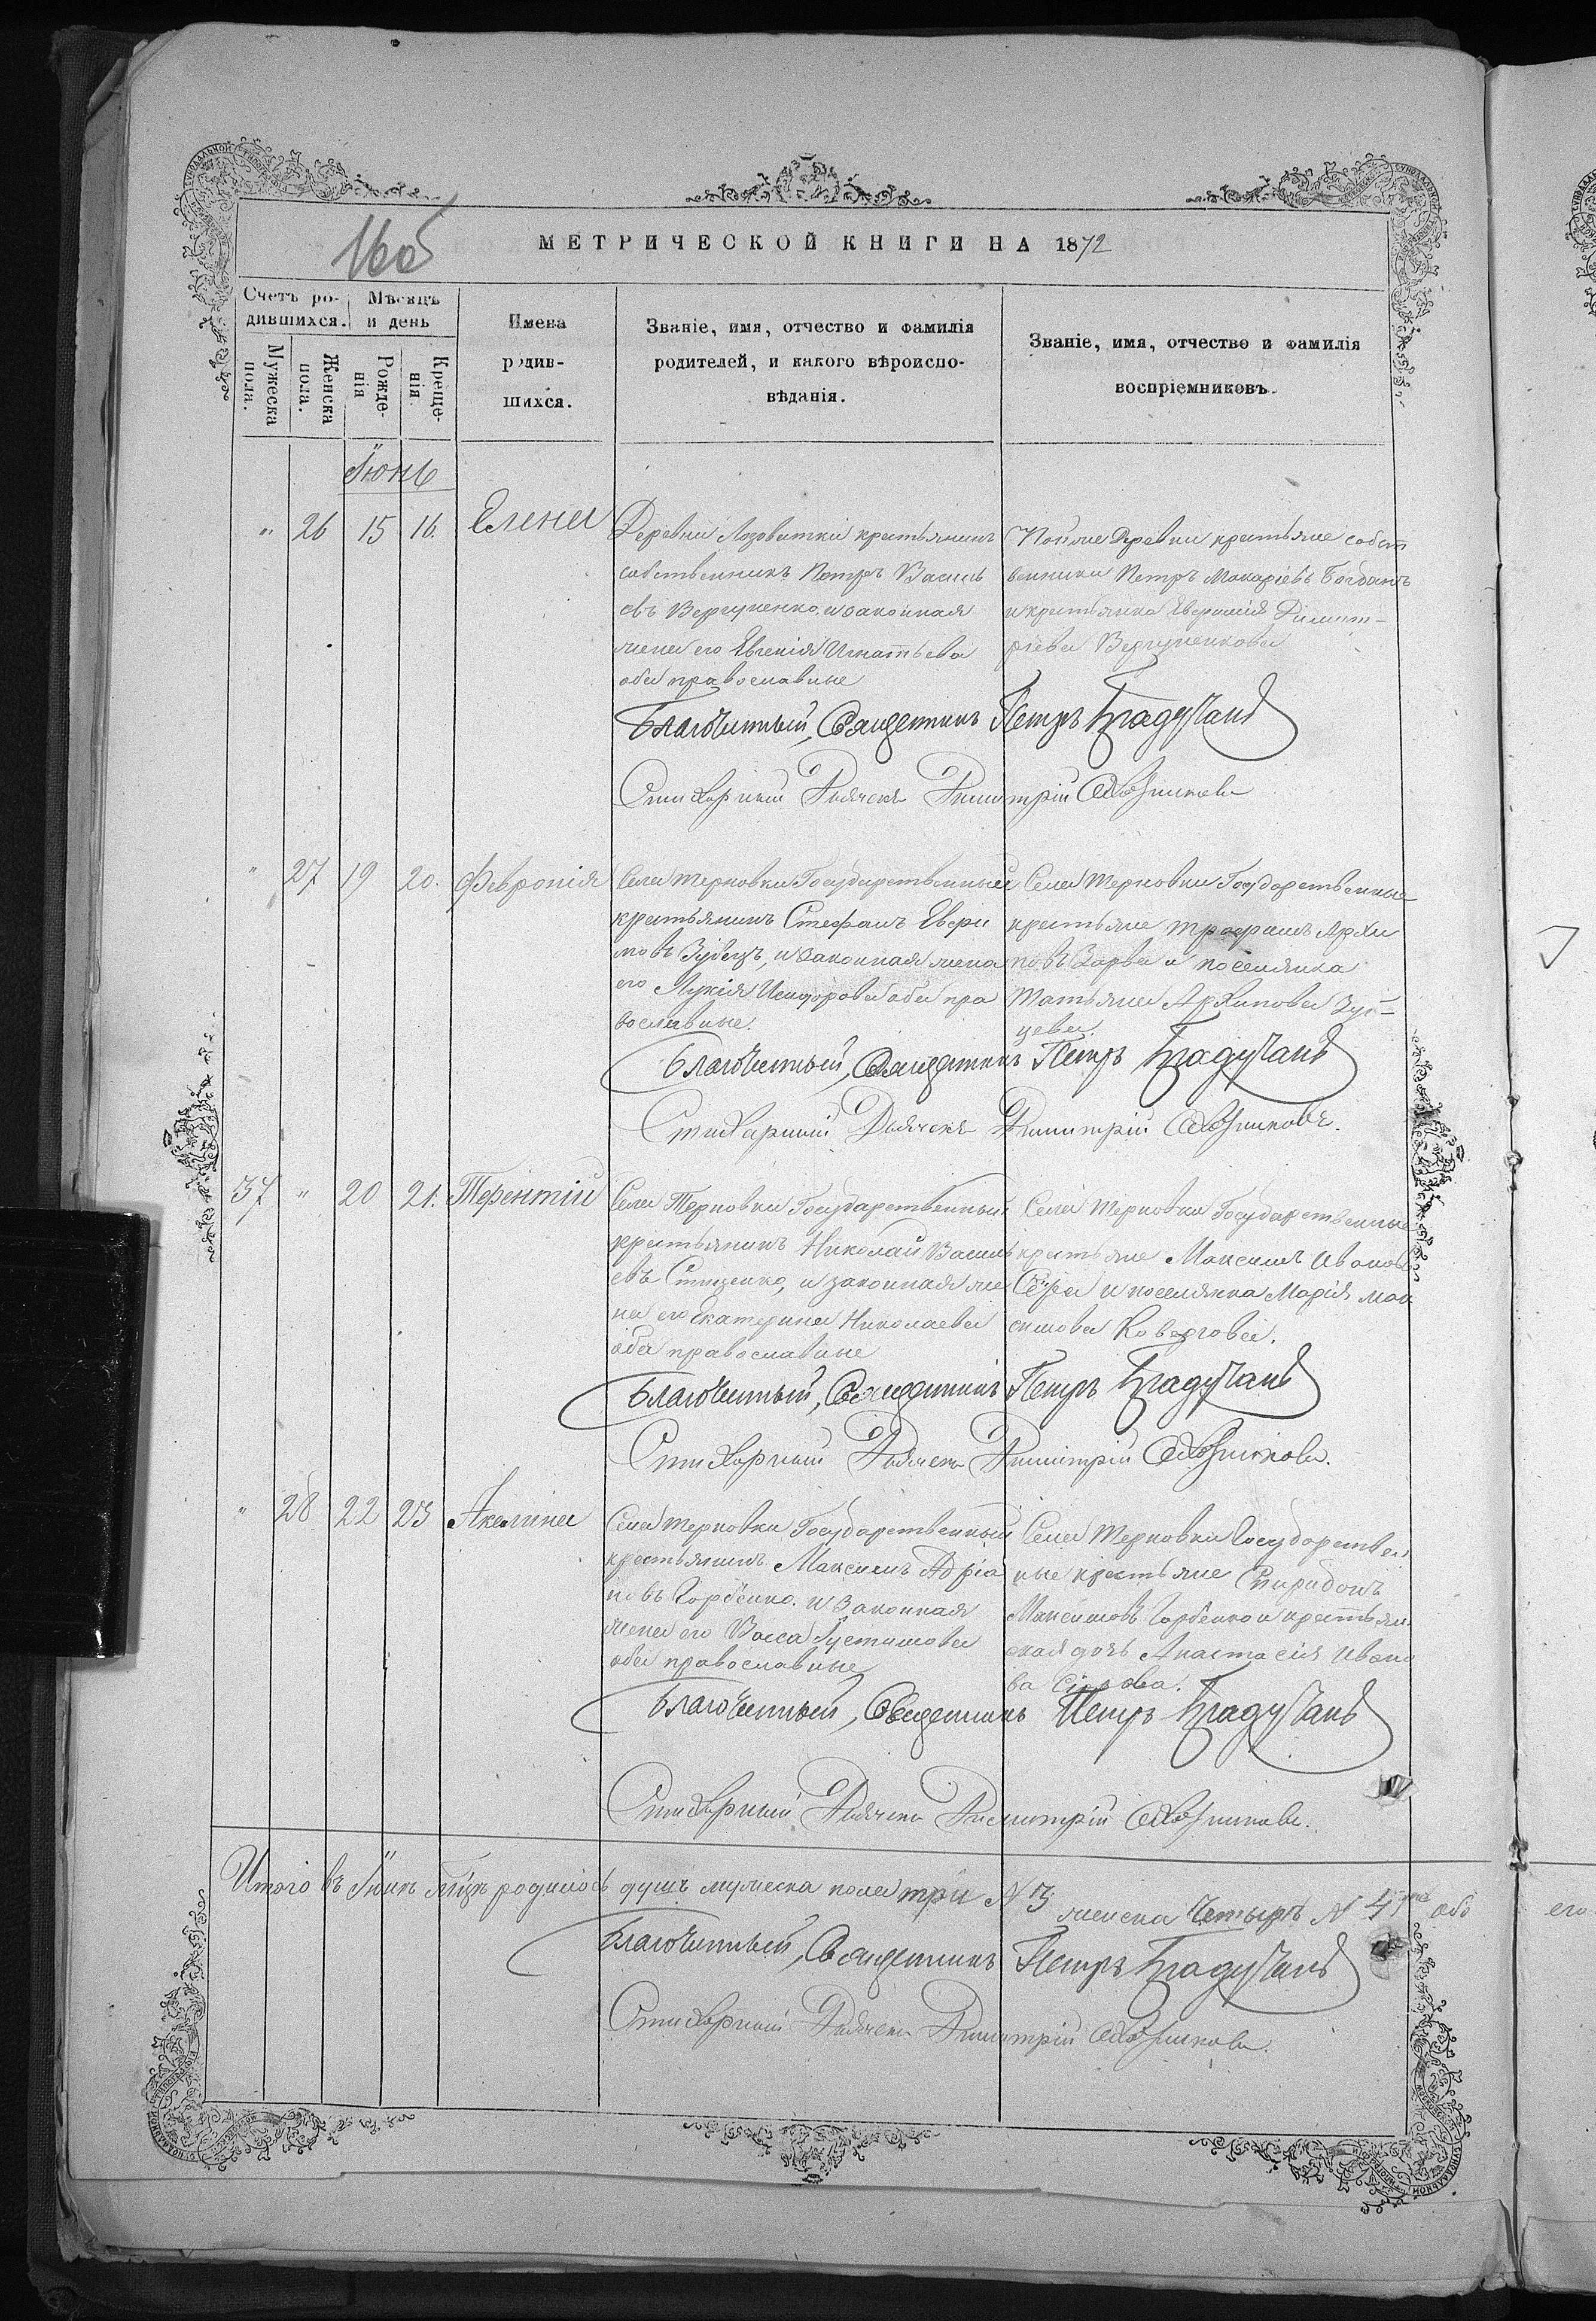 МЕТРИЧЕСКОЙ КНИГИ НА 1872
Счетъ ро-
дившихся.
Мѣсяцъ
и день
Мужеска
пола.
Женска
пола.
Рожде-
нія
Креще-
нія
Имена
родив-
шихся.
Званіе, имя, отчество и фамилія
родителей, и какого вѣроиспо-
вѣданія.
Званіе, имя, отчество и фамилія
воспріемниковъ.
Іюнь
" 26 15 16. Елена
Деревни Лозоватки крестьянинъ
собственникъ Петръ Василь
евъ Вергуненко. и законная
жена его Евгенія Игнатьева
оба православные
деревни крестьяне собст
венники Петръ Макаріевъ Богданъ
и крестьянка Димит-
ріева Вергуненкова
Благочинный, Священникъ Петръ
Стихарный Дьячекъ Димитрій
" 27 19 20. Февронія
Села Терновки Государственный
крестьянинъ Стефанъ
мовъ Зубецъ, и законная жена
его Лукія Исидорова оба пра
вославные.
Села Терновки Государственные
крестьяне Трофимъ Архи
повъ и поселянка
Татьяна Архипова Зуб-
цева.
Благочинный, Священникъ Петръ
Стихарный Дьячекъ Димитрій
37 " 20 21. Терентій
Села Терновки Государственный
крестьянинъ Николай Василь
евъ Стаценко, и законная же
на его Екатерина Николаева
оба православные
Села Терновки Государственные
крестьяне Максимъ Ивановъ
и поселянка Марія Мак
симова
Благочинный, Священникъ Петръ
Стихарный Дьячекъ Димитрій
" 28 22 23 Акилина
Села Терновки Государственный
крестьянинъ Максимъ Адріа
новъ Горбенко. и законная
жена его Васса Іустинова
оба православные
Села Терновки Государствен
ные крестьяне Спиридонъ
Максимовъ Горбенко и крестьян
ская дочь Анастасія Ивано
ва
Благочинный, Священникъ Петръ
Стихарный Дьячекъ Димитрій
Итого въ Іюнѣ м҃цѣ родилось душъ мужеска пола три N 3 женска четыре N 4 обо его
Благочинный, Священникъ Петръ
Стихарный Дьячекъ Димитрій